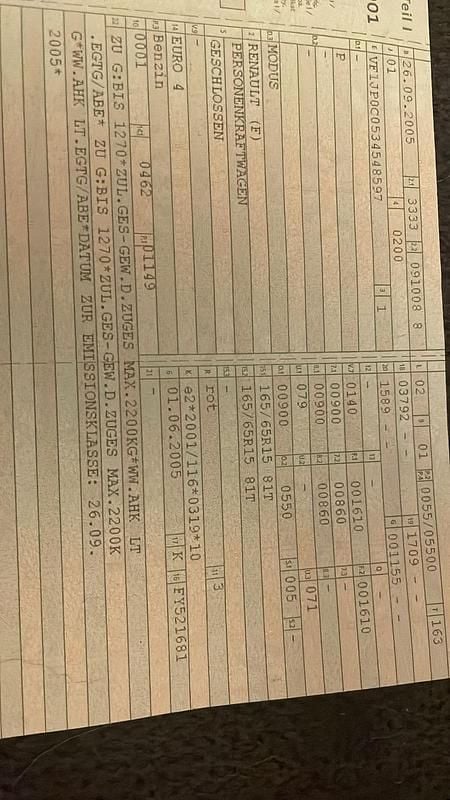 Teil I
B 26.09.2005 2.1 3333 2.2 091008 8
J 01 4 0200
E VF1JP0C0534548597 3 1
D.1 -
P
D.2 -
-
D.3 MODUS
2 RENAULT (F)
PERSONENKRAFTWAGEN
5 GESCHLOSSEN
V.9 -
14 EURO 4
P.3 Benzin
10 0001 14.1 0462 P.1 01149
22 ZU G:BIS 1270*ZUL.GES-GEW.D.ZUGES MAX.2200KG*WW.AHK LT
.EGTG/ABE* ZU G:BIS 1270*ZUL.GES-GEW.D.ZUGES MAX.2200K
G*WW.AHK LT.EGTG/ABE*DATUM ZUR EMISSIONSKLASSE: 26.09.
2005*
L 02 9 01 P.2 P.4 0055/05500 T 163
18 03792 - - 19 1709 - -
20 1589 - - G 001155 - -
12 - 13 - Q -
V.7 0140 F.1 001610 F.2 001610
7.1 00900 7.2 00860 7.3 -
8.1 00900 8.2 00860 8.3 -
U.1 079 U.2 - U.3 071
O.1 00900 O.2 0550 S.1 005 S.2 -
15.1 165/65R15 81T
15.2 165/65R15 81T
15.3 -
R rot 11 3
K e2*2001/116*0319*10
6 01.06.2005 17 K 16 FY521681
21 -